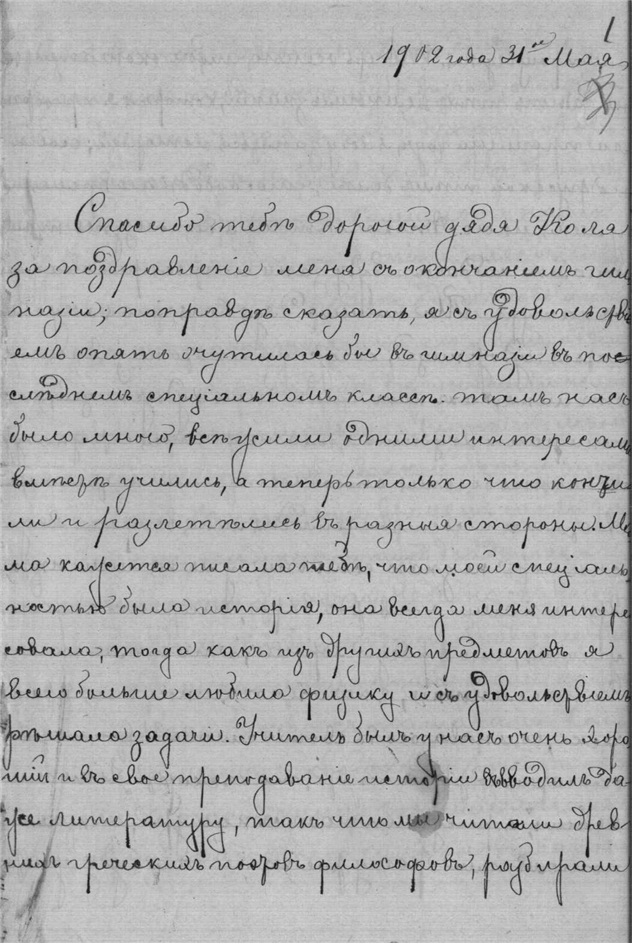 1
1902 года 31ое Мая
Спасибо тебѣ дорогой дядя Коля
за поздравленіе меня съ окончаніемъ гим
назіи; поправдѣ сказать, я съ удовольств
емъ опять очутилась бы въ гимназіи въ пос
слѣднемъ спеціальномъ классѣ. тамъ насъ
было много, всѣ жили одними интересами
вмѣстѣ учились, а теперь только что кончи
ли и разлетѣлись въ разныя стороны. Ма
ма кажется писала тебѣ, что моей спеціаль
ностью была исторія, она всегда меня интере
совала, тогда какъ изъ другихъ предметовъ я
всего больше любила физику и съ удовольствіемъ
рѣшала задачи. Учитель былъ у насъ очень хоро
шій и въ свое преподаваніе исторіи вводилъ да
же литературу, такъ что мы читали древ
нихъ греческихъ поэтовъ философовъ, разбирали